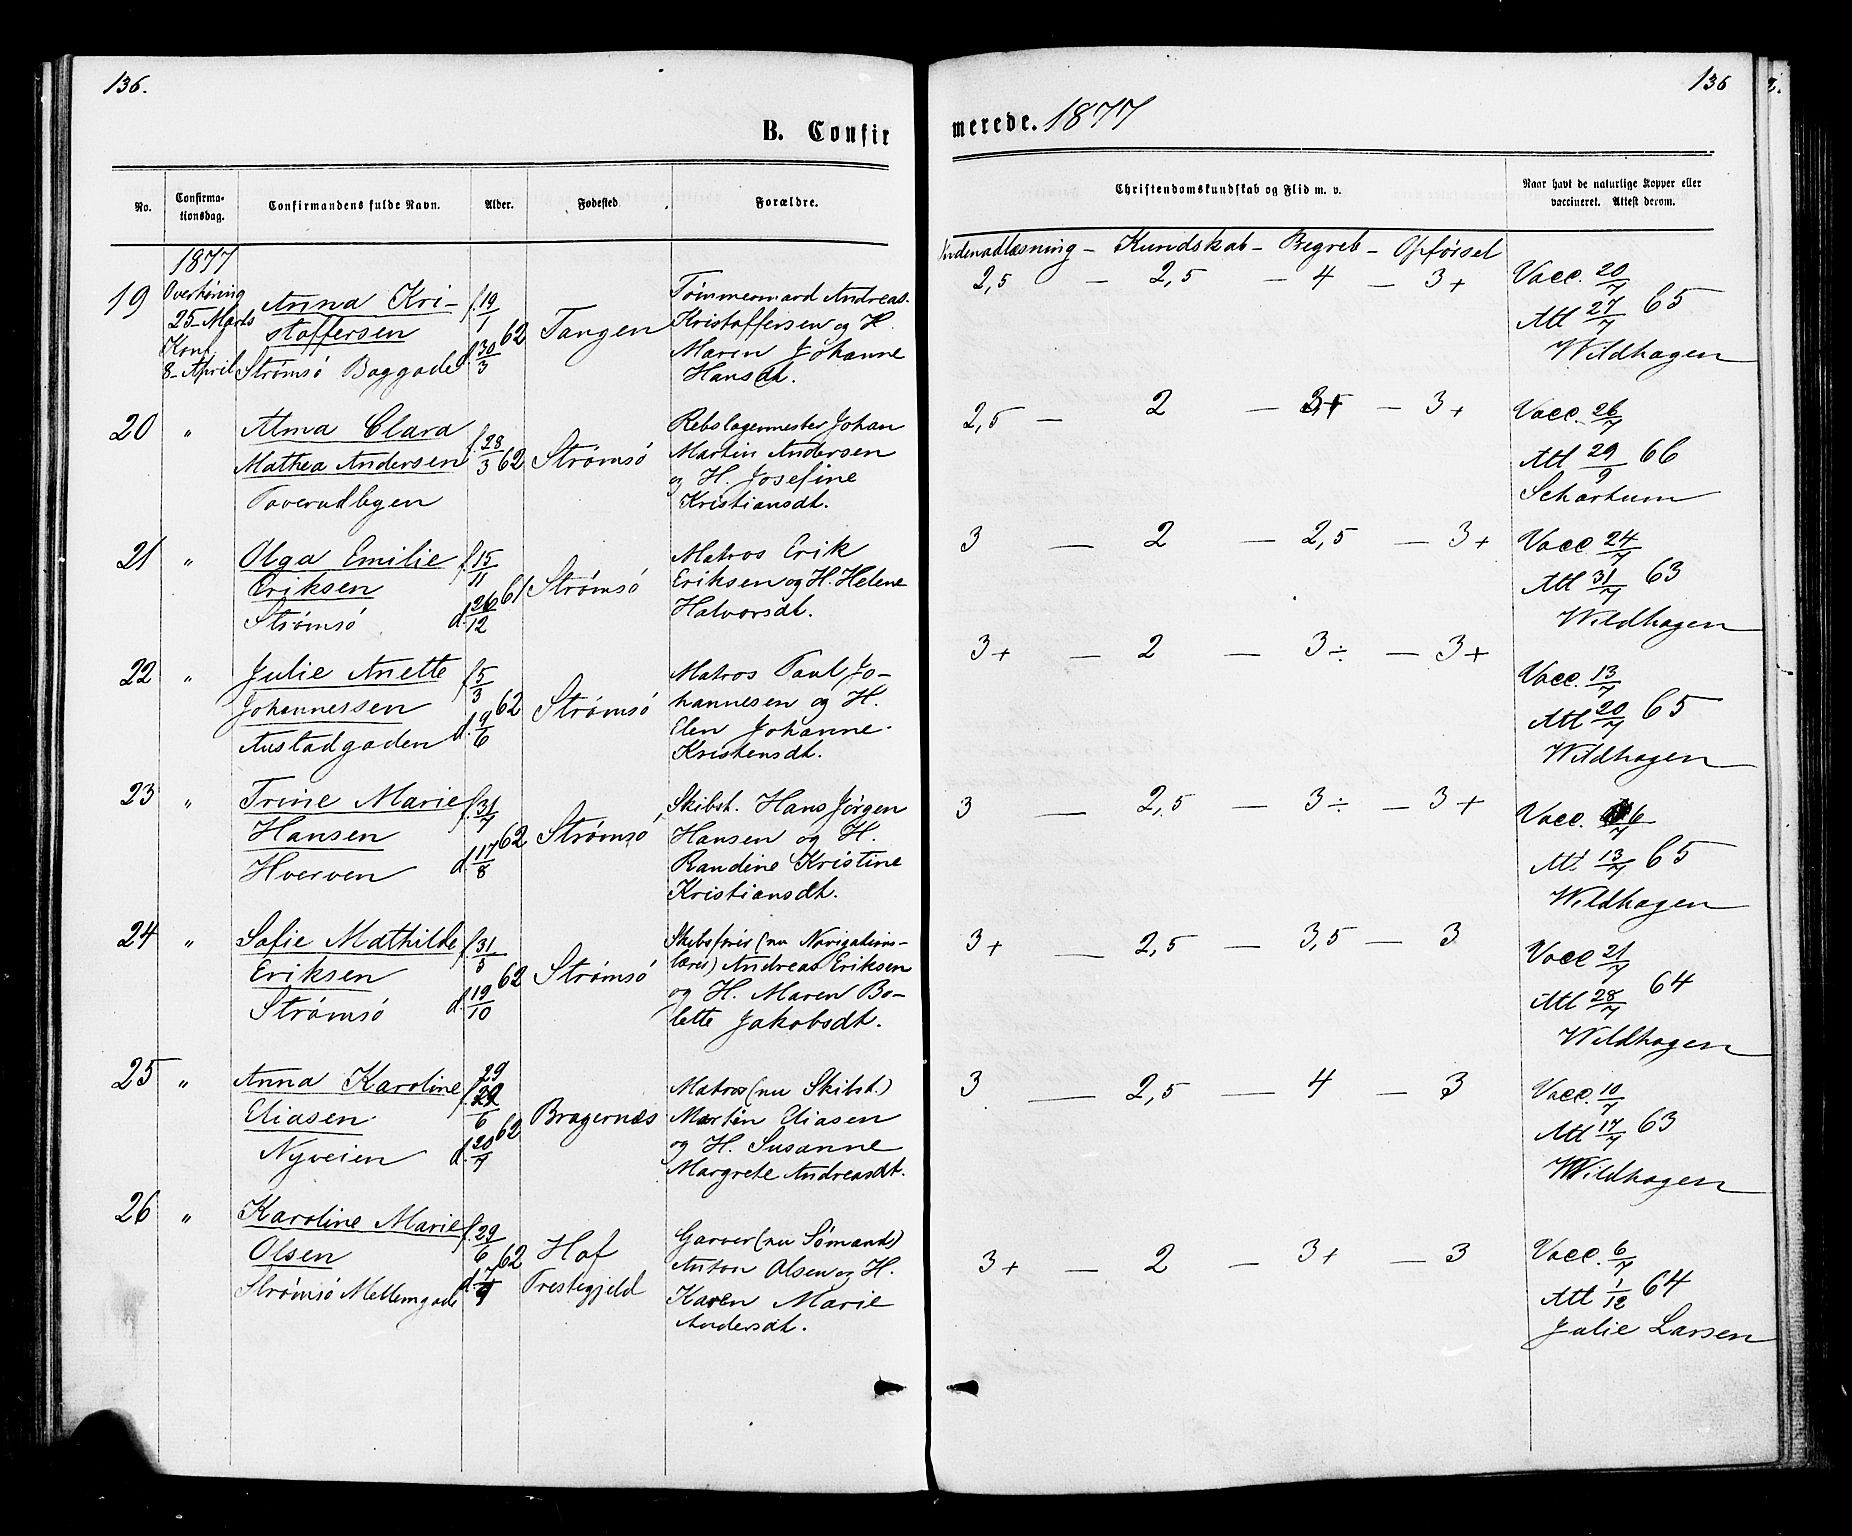 136.
136
B. Confirmerede. 1877
No.
Confirmationsdag.
Confirmandens fulde Navn.
Alder.
Fødested
Forældre.
Christendomskundskab og Flid m. v.
Naar havt de naturlige Kopper eller
vaccineret. Attest derom.
Indenadlæsning – Kundskab – Begreb – Opførsel
1877
19
Overhøring
25– Marts
Konf.
8– April
Anna Kri-
stoffersen
Strømsø Baggade
f. 19/1
d. 30/3 62
Tangen
Tømmermand Andreas
Kristoffersen og H.
Maren Johanne
Hansdt.
2,5 – 2,5 – 4 – 3+
Vacc. 20/7
Att 27/7 65
Wildhagen
20 "
Alma Clara
Mathea Andersen
f. 28/3 62
Strømsø
Rebslagermester Johan
Martin Andersen
og H. Josefine
Kristiansdt.
2,5 – 2 – – 3+
Vacc. 26/7
Att 29/9 66
Schartum
21 "
Olga Emilie
Eriksen
Strømsø
f. 15/11
d. 26/12 61
Strømsø
Matros Erik
Eriksen og H. Helene
Halvorsdt.
3 – 2 – 2,5 – 3+
Vacc 24/7
Att 31/7 63
Wildhagen
22 "
Julie Anette
Johannessen
Austadgaden
f. 5/3
d. 9/6 62
Strømsø
Matros Paul Jo-
hannesen og H.
Elen Johanne
Kristensdt.
3+ – 2 – 3÷ – 3+
Vacc. 13/7
Att 20/7 65
Wildhagen
23 "
Trine Marie
Hansen
Hverven
f. 31/7
d. 17/8 62
Strømsø
Skibst. Hans Jörgen
Hansen og H.
Randine Kristine
Kristiansdt.
3 – 2,5 – 3÷ – 3+
Vacc. 6/7
Att 13/7 65
Wildhagen
24 "
Sofie Mathilde
Eriksen
Strømsø
f. 31/5
d. 19/10 62
Strømsø
Skibsfører (nu Navigations-
lærer) Andreas Eriksen
og H. Maren Bo-
lette Jakobsdt.
3+ – 2,5 – 3,5 – 3
Vacc 21/7
Att 28/7 64
Wildhagen
25 "
Anna Karoline
Eliasen
Nyveien
f. 29/6
d. 20/7 62
Bragernæs
Matros (nu Skibst.)
Martin Eliasen
og H. Susanne
Margrete Andreasdt.
3 – 2,5 – 4 – 3
Vacc. 10/7
Att 17/7 63
Wildhagen
26 "
Karoline Marie
Olsen
Strømsø Mellemgade
f. 29/6 62
Hof
Prestegjeld
Garver (nu Sømand)
Anton Olsen og H.
Karen Marie
Andersdt.
3+ – 2 – 3+ – 3
Vacc. 6/7
Att 1/12 64
Julie Larsen